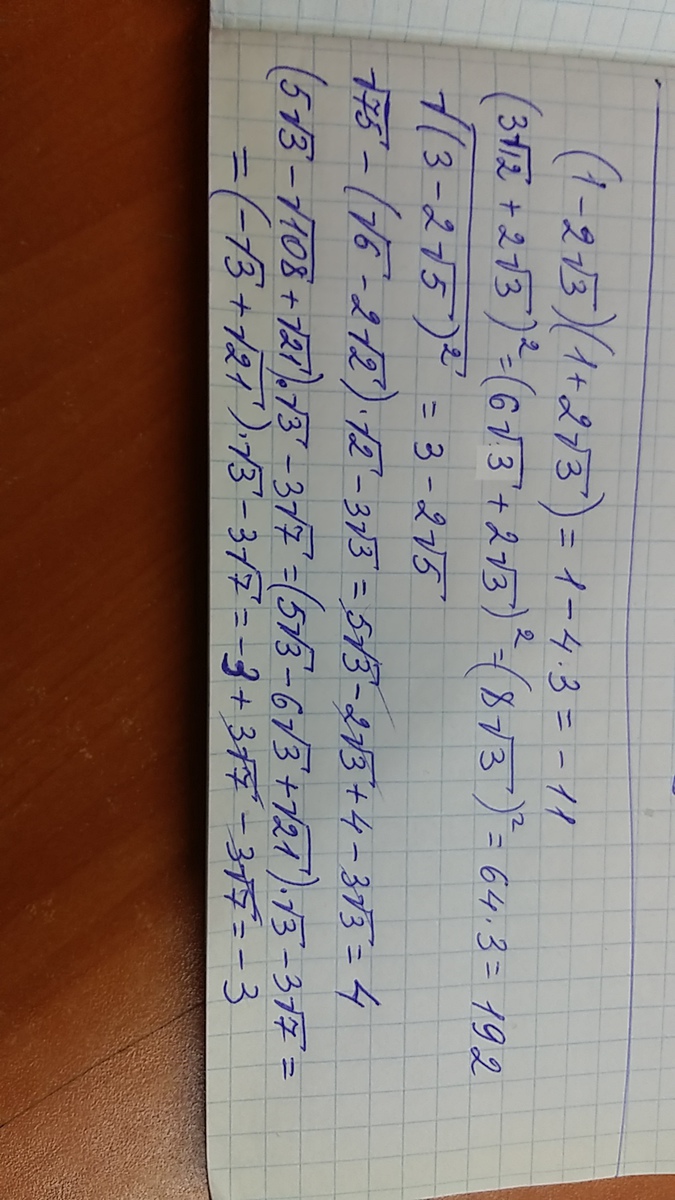 (1-2√3)(1+2√3)=1-4·3=-11
(3√12+2√3)²=(6√3+2√3)²=(8√3)²=64·3=192
√(3-2√5)²=3-2√5
√75-(√6-2√2)·√2-3√3=5√3-2√3+4-3√3=4
(5√3-√108+√21)·√3-3√7=(5√3-6√3+√21)·√3-3√7=
=(-√3+√21)·√3-3√7=-3+3√7-3√7=-3